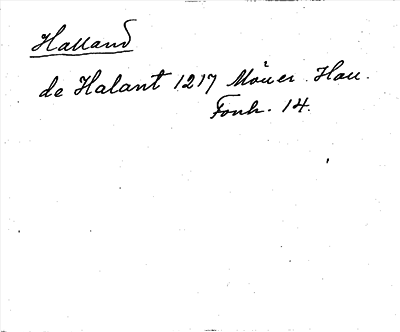 Halland
de Halant 1217 Möller. Hall.
Fonh. 14.